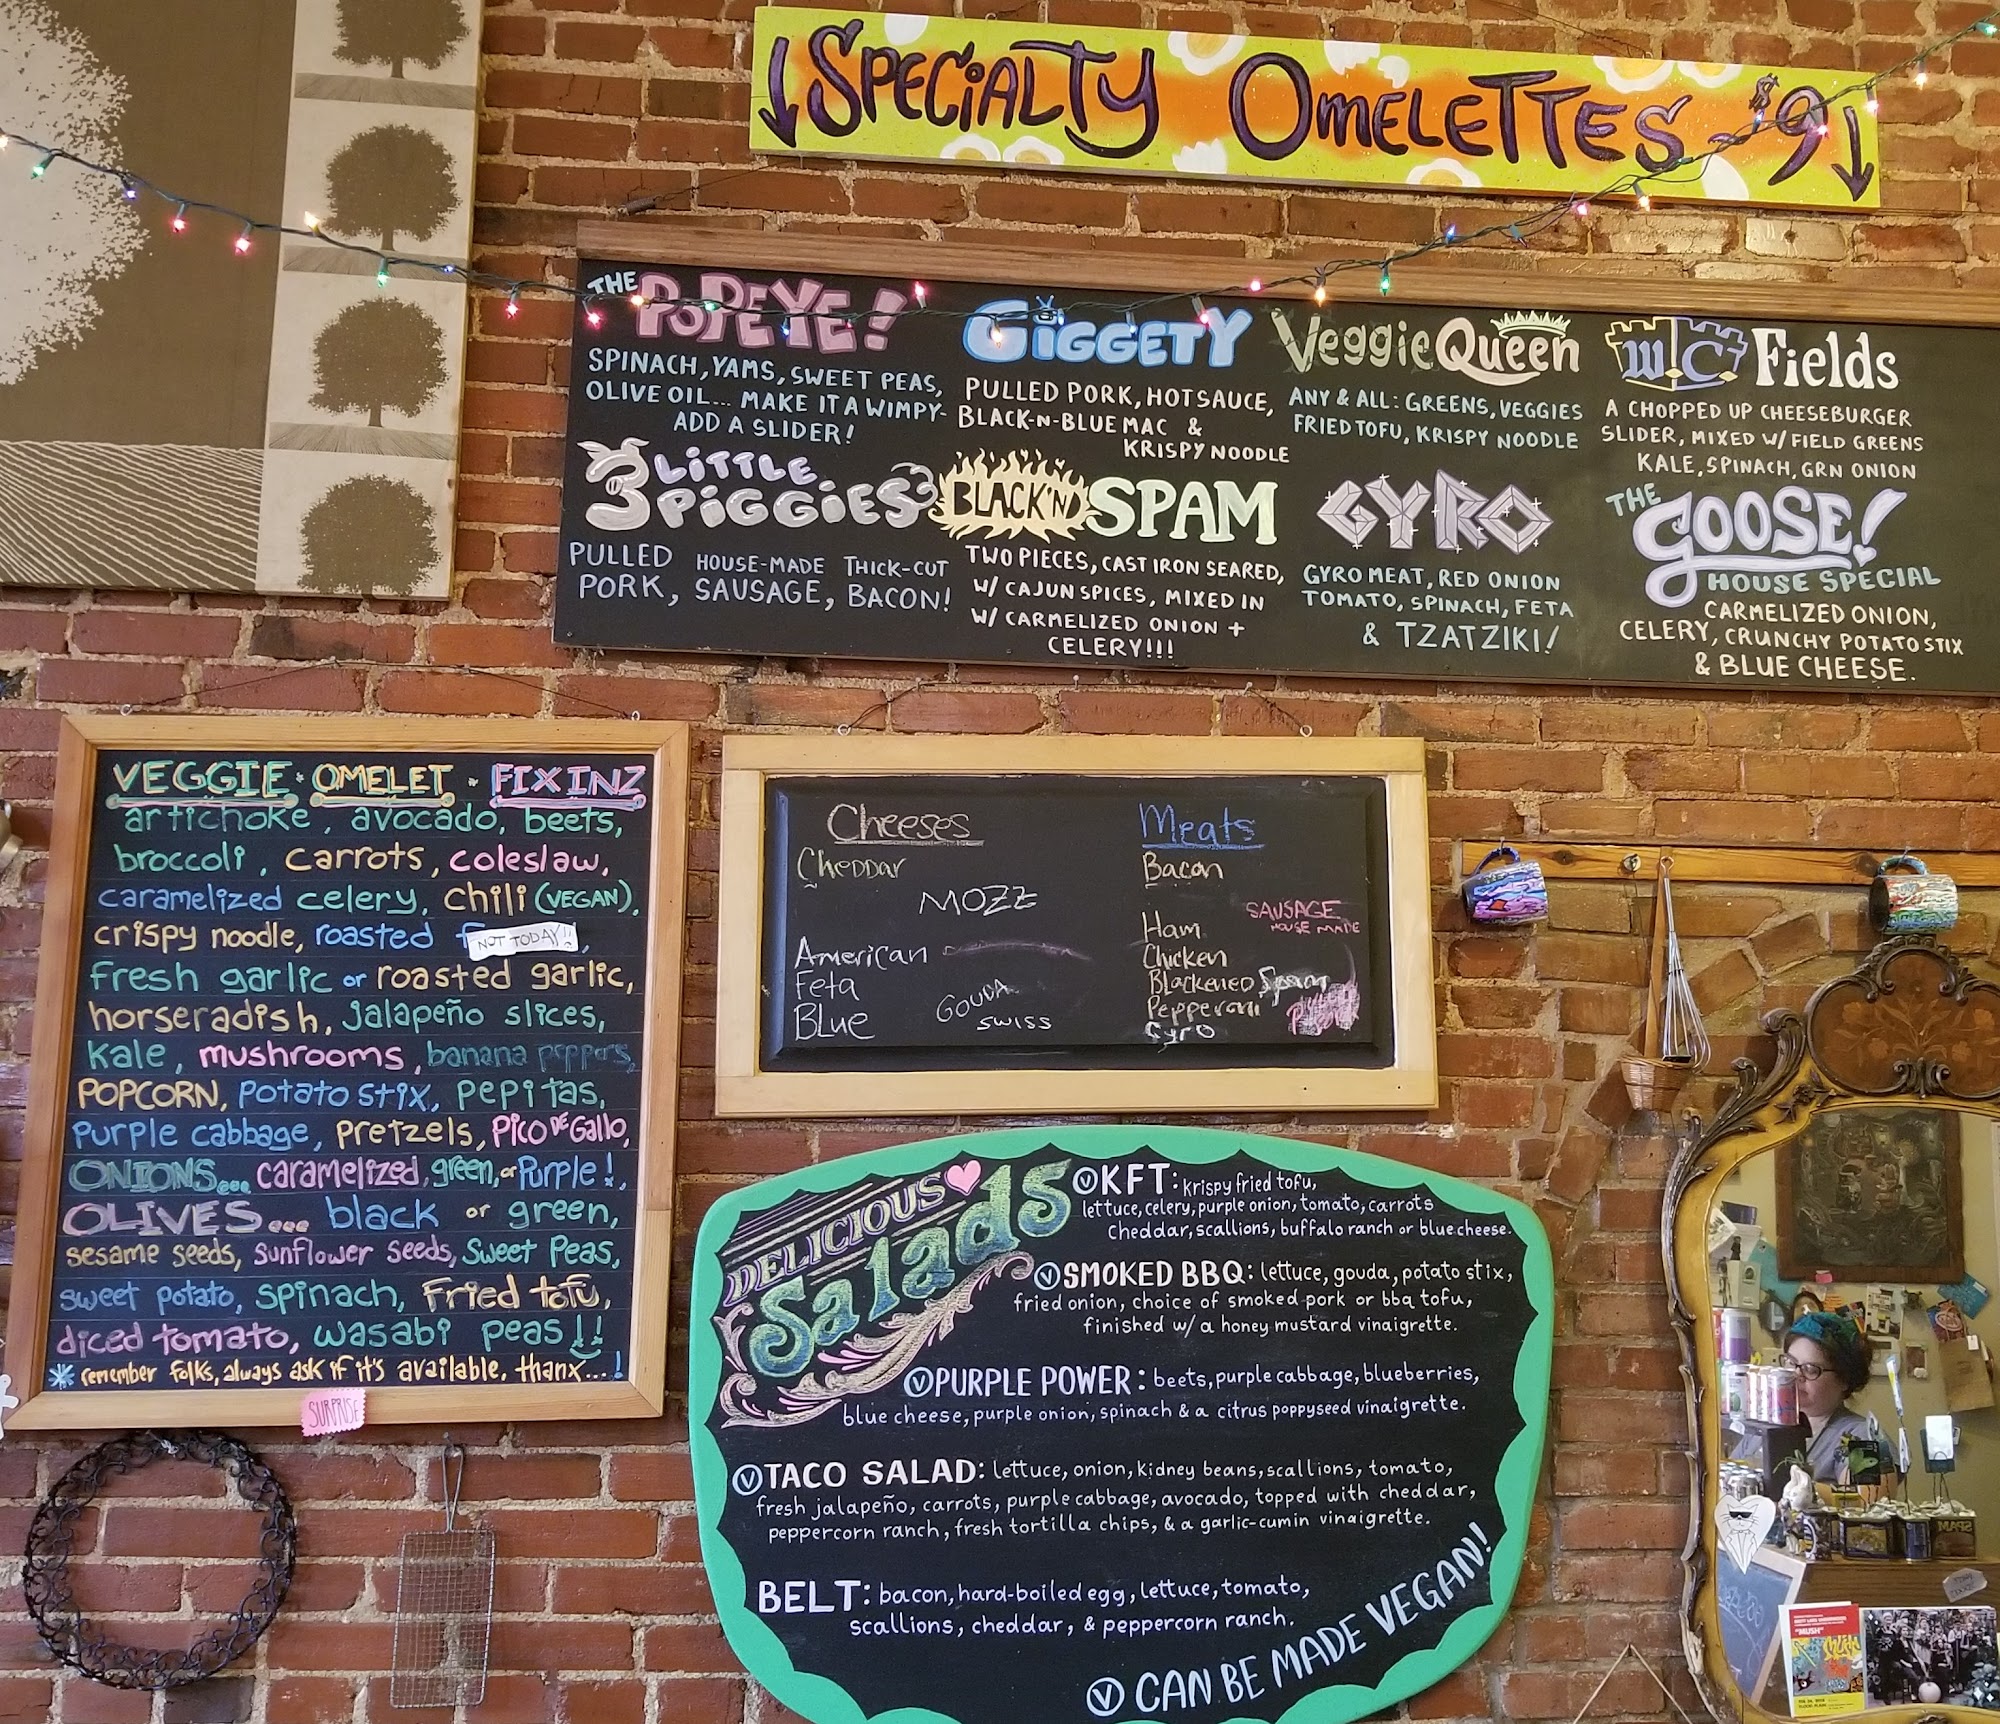 SPECIALTY OMELETTES - $9
THE POPEYE!
SPINACH, YAMS, SWEET PEAS,
OLIVE OIL... MAKE IT A WIMPY-
ADD A SLIDER!
GIGGETY
PULLED PORK, HOT SAUCE,
BLACK-N-BLUE MAC &
KRISPY NOODLE
Veggie Queen
ANY & ALL: GREENS, VEGGIES
FRIED TOFU, KRISPY NOODLE
W.C. Fields
A CHOPPED UP CHEESEBURGER
SLIDER, MIXED W/ FIELD GREENS
KALE, SPINACH, GRN ONION
3 LITTLE
PIGGIES
PULLED HOUSE-MADE THICK-CUT
PORK, SAUSAGE, BACON!
BLACK'ND SPAM
TWO PIECES, CAST IRON SEARED,
W/ CAJUN SPICES, MIXED IN
W/ CARMELIZED ONION +
CELERY!!!
GYRO
GYRO MEAT, RED ONION
TOMATO, SPINACH, FETA
& TZATZIKI!
THE GOOSE!
HOUSE SPECIAL
CARMELIZED ONION,
CELERY, CRUNCHY POTATO STIX
& BLUE CHEESE.
VEGGIE · OMELET · FIXINZ
artichoke, avocado, beets,
broccoli, carrots, coleslaw,
caramelized celery, chili (VEGAN),
crispy noodle, roasted NOT TODAY!!,
fresh garlic or roasted garlic,
horseradish, jalapeño slices,
kale, mushrooms, banana peppers,
POPCORN, potato stix, pepitas,
purple cabbage, pretzels, Pico DE Gallo,
ONIONS... caramelized, green, or Purple!,
OLIVES... black or green,
sesame seeds, sunflower seeds, sweet peas,
sweet potato, spinach, Fried tofu,
diced tomato, wasabi peas!!
* remember folks, always ask if it's available, thanx...!
SURPRISE
Cheeses
Cheddar
MOZZ
American
Feta
GOUDA
BLue
SWISS
Meats
Bacon
SAUSAGE
HOUSE MADE
Ham
Chicken
Blackened Spam
Pepperoni
Gyro
DELICIOUS
Salads
V KFT: krispy fried tofu,
lettuce, celery, purple onion, tomato, carrots
cheddar, scallions, buffalo ranch or blue cheese.
V SMOKED BBQ: lettuce, gouda, potato stix,
fried onion, choice of smoked pork or bbq tofu,
finished w/ a honey mustard vinaigrette.
V PURPLE POWER: beets, purple cabbage, blueberries,
blue cheese, purple onion, spinach & a citrus poppyseed vinaigrette.
V TACO SALAD: lettuce, onion, kidney beans, scallions, tomato,
fresh jalapeño, carrots, purple cabbage, avocado, topped with cheddar,
peppercorn ranch, fresh tortilla chips, & a garlic-cumin vinaigrette.
BELT: bacon, hard-boiled egg, lettuce, tomato,
scallions, cheddar, & peppercorn ranch.
V CAN BE MADE VEGAN!
"MUSH"